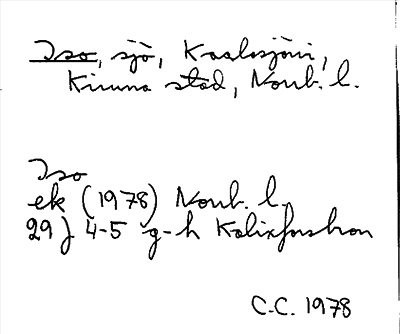 Iso, sjö, Kaalasjärvi,
Kiruna stad, Norrb. l.
Iso
ek (1978) Norrb. l.
29J 4-5 g-h Kalixforsbron
C.C. 1978